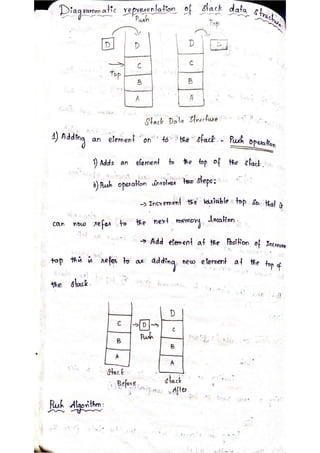 Diagrammatic representation of stack data structure
Push Pop
D D D D
C C
Top
B B
A A
Stack Data Structure
1) Adding an element on to the stack - Push operation
i) Adds an element to the top of the stack.
ii) Push operation involves two steps:
→ Increment the variable top so that it
can now refer to the next memory location.
→ Add element at the Position of Increment
top this is refer to as adding new element at the top of
the stack.
D
C → D → C
Push
B B
A A
Stack Stack
Before After
Push Algorithm: